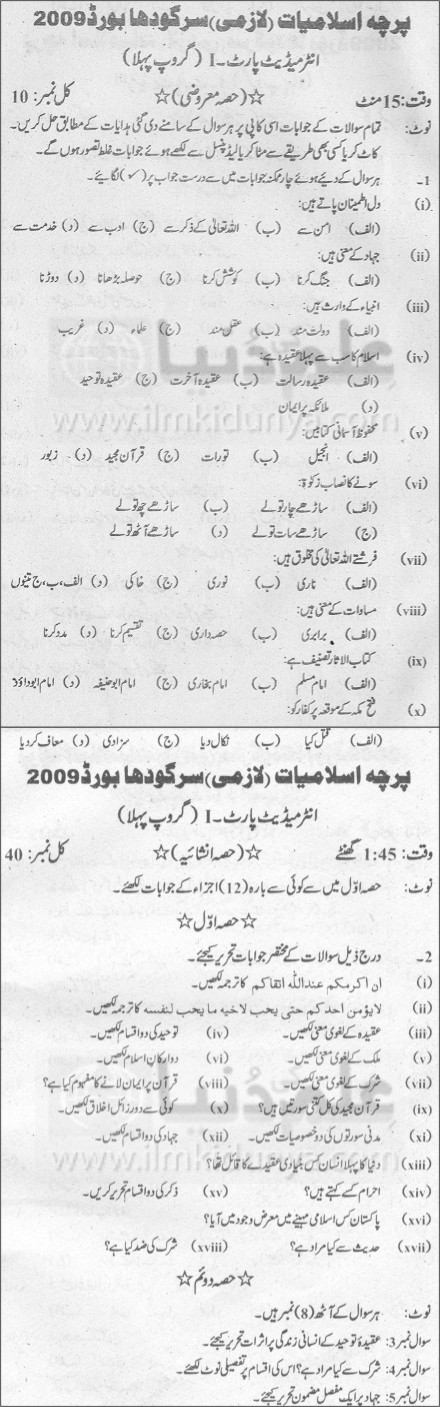 پرچہ اسلامیات (لازمی) سرگودھا بورڈ 2009
انٹرمیڈیٹ پارٹ۔ I (گروپ پہلا)
وقت: 15 منٹ ☆(حصہ معروضی)☆ کل نمبر: 10
نوٹ: تمام سوالات کے جوابات اسی کاپی پر ہر سوال کے سامنے دی گئی ہدایات کے مطابق حل کریں۔
کاٹ کر یا کسی بھی طریقے سے مٹا کر یا لیڈ پنسل سے لکھے ہوئے جوابات غلط تصور ہوں گے۔
1۔ ہر سوال کے دیئے ہوئے چار ممکنہ جوابات میں سے درست جواب پر (✓) لگائیے۔
(i) دل اطمینان پاتے ہیں:
(الف) امن سے (ب) اللہ تعالیٰ کے ذکر سے (ج) ادب سے (د) خدمت سے
(ii) جہاد کے معنی ہیں:
(الف) جنگ کرنا (ب) کوشش کرنا (ج) حوصلہ بڑھانا (د) دوڑنا
(iii) انبیاء کے وارث ہیں:
(الف) دولت مند (ب) عقل مند (ج) علماء (د) غریب
(iv) اسلام کا سب سے پہلا عقیدہ ہے:
(الف) عقیدہ رسالت (ب) عقیدہ آخرت (ج) عقیدہ توحید
(د) ملائکہ پر ایمان
(v) محفوظ آسمانی کتابیں:
(الف) انجیل (ب) تورات (ج) قرآن مجید (د) زبور
(vi) سونے کا نصاب زکوٰۃ:
(الف) ساڑھے چار تولے (ب) ساڑھے چھ تولے
(ج) ساڑھے سات تولے (د) ساڑھے آٹھ تولے
(vii) فرشتے اللہ تعالیٰ کی مخلوق ہیں:
(الف) ناری (ب) نوری (ج) خاکی (د) الف، ب، ج تینوں
(viii) مساوات کے معنی ہیں:
(الف) برابری (ب) حصہ داری (ج) تقسیم کرنا (د) مدد کرنا
(ix) کتاب الاثار تصنیف ہے:
(الف) امام مسلم (ب) امام بخاری (ج) امام ابوحنیفہ (د) امام ابوداؤد
(x) فتح مکہ کے موقعہ پر کفار کو:
(الف) قتل کیا (ب) نکال دیا (ج) سزا دی (د) معاف کر دیا
پرچہ اسلامیات (لازمی) سرگودھا بورڈ 2009
انٹرمیڈیٹ پارٹ۔ I (گروپ پہلا)
وقت: 1:45 گھنٹے ☆(حصہ انشائیہ)☆ کل نمبر: 40
نوٹ: حصہ اوّل میں سے کوئی سے بارہ (12) اجزاء کے جوابات لکھئے۔
☆ حصہ اوّل ☆
2۔ درج ذیل سوالات کے مختصر جوابات تحریر کیجئے۔
(i) ان اکرمکم عنداللہ اتقاکم کا ترجمہ لکھیں۔
(ii) لایؤمن احدکم حتی یحب لاخیہ ما یحب لنفسہ کا ترجمہ لکھیں۔
(iii) عقیدہ کے لغوی معنی لکھیں۔ (iv) توحید کی دو اقسام لکھیں۔
(v) ملک کے لغوی معنی لکھیں۔ (vi) دو ارکان اسلام لکھیں۔
(vii) شرک کے لغوی معنی لکھیں۔ (viii) قرآن پر ایمان لانے کا مفہوم کیا ہے؟
(ix) قرآن مجید کی کل کتنی سورتیں ہیں؟ (x) کوئی سے دو رزائل اخلاق لکھیں۔
(xi) مدنی سورتوں کی دو خصوصیات لکھیں۔ (xii) جہاد کی دو اقسام لکھیں۔
(xiii) دنیا کا پہلا انسان کس بنیادی عقیدے کا قائل تھا؟
(xiv) احرام کسے کہتے ہیں؟ (xv) ذکر کی دو اقسام تحریر کریں۔
(xvi) پاکستان کس اسلامی مہینے میں معرض وجود میں آیا؟
(xvii) حدیث سے کیا مراد ہے؟ (xviii) شرک کی ضد کیا ہے؟
☆ حصہ دوئم ☆
نوٹ: ہر سوال کے آٹھ (8) نمبر ہیں۔
سوال نمبر 3: عقیدۂ توحید کے انسانی زندگی پر اثرات تحریر کیجئے۔
سوال نمبر 4: شرک سے کیا مراد ہے؟ اس کی اقسام پر تفصیلی نوٹ لکھئے۔
سوال نمبر 5: جہاد پر ایک مفصل مضمون تحریر کیجئے۔
علم کی دنیا
www.ilmkidunya.com
علم کی دنیا
www.ilmkidunya.com